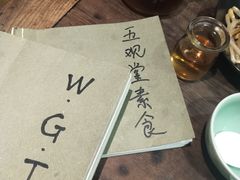 五观堂素食
W.G.T